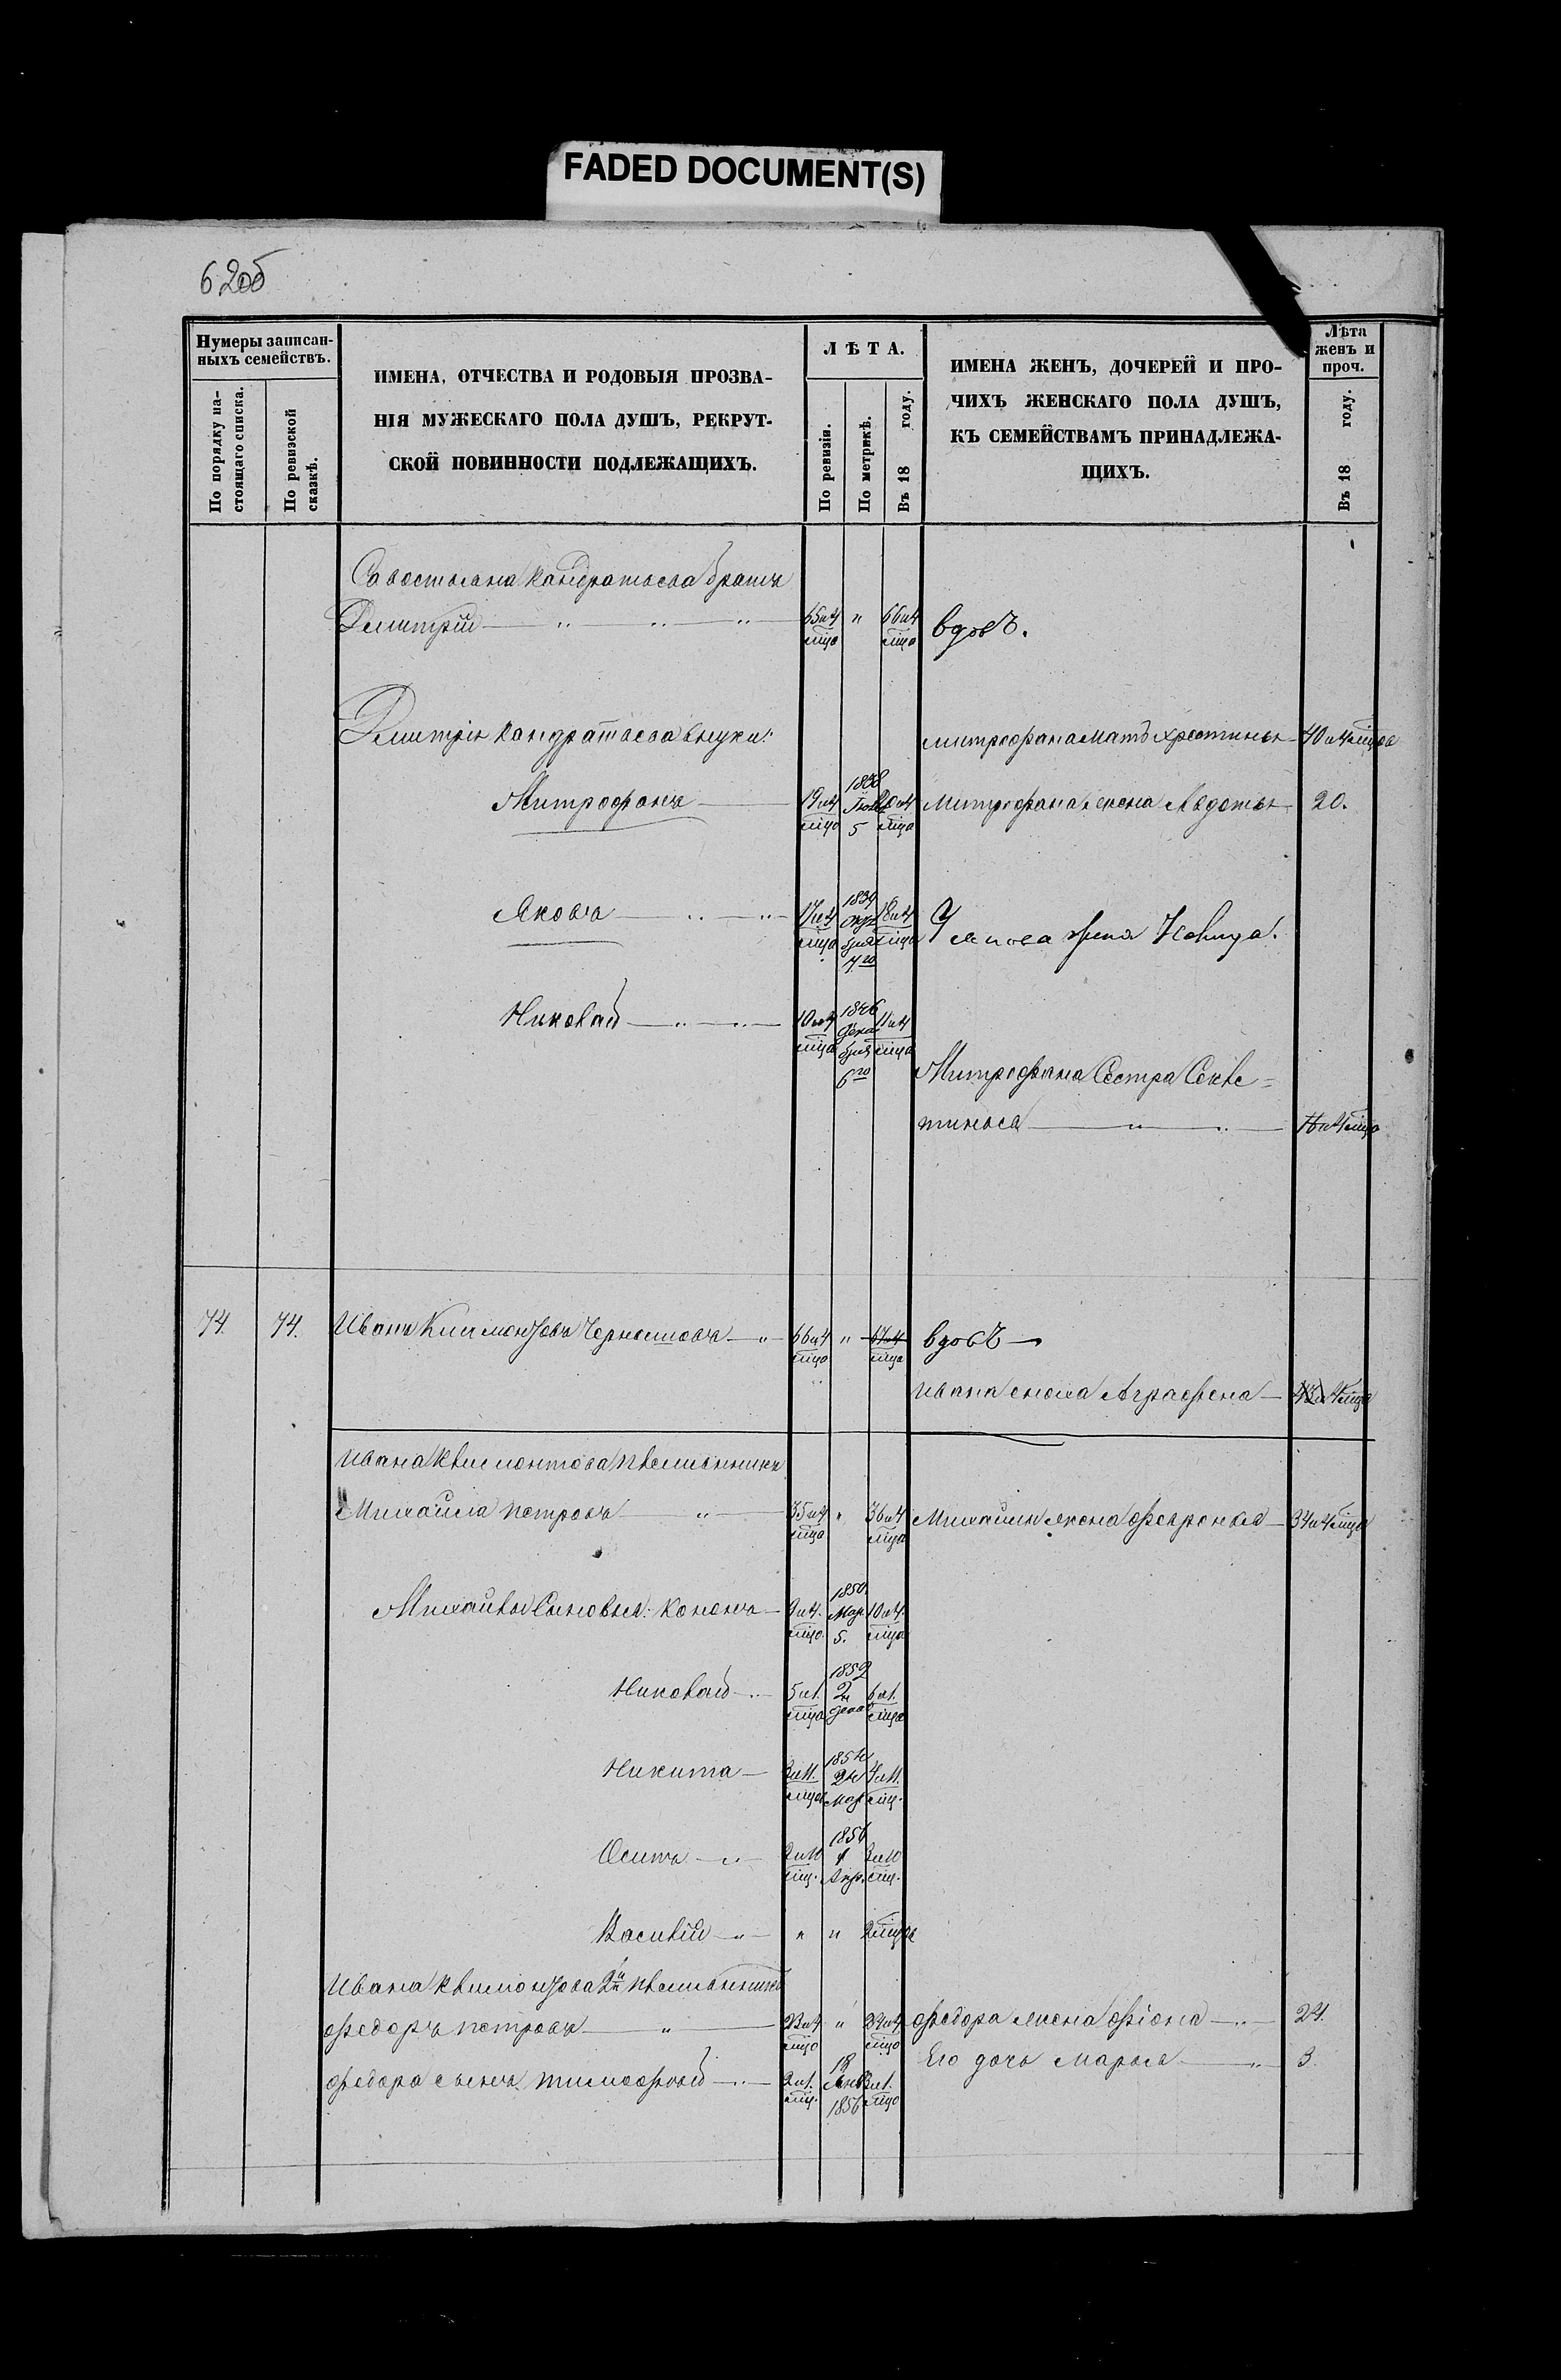 FADED DOCUMENT(S)
62об
Нумеры записан-
ныхъ семействъ.
По порядку на-
стоящаго списка.
По ревизской
сказкѣ.
ИМЕНА, ОТЧЕСТВА И РОДОВЫЯ ПРОЗВА-
НІЯ МУЖЕСКАГО ПОЛА ДУШЪ, РЕКРУТ-
СКОЙ ПОВИННОСТИ ПОДЛЕЖАЩИХЪ.
ЛѢТА.
По ревизіи.
По метрикѣ.
Въ 18 году.
ИМЕНА ЖЕНЪ, ДОЧЕРЕЙ И ПРО-
ЧИХЪ ЖЕНСКАГО ПОЛА ДУШЪ,
КЪ СЕМЕЙСТВАМЪ ПРИНАДЛЕЖА-
ЩИХЪ.
Лѣта
женъ и
проч.
Въ 18 году.
Савостьяна Кандратьева братъ
Дмитрій — " — " — " 65 и 4 мца " 66 и 4 мца вдовъ.
Дмитрія Кандратьева внуки: Митрофана мать Христинья 40 и 4 мца
Митрофанъ 19 и 4 мца 1838 5 20 и 4 мца Митрофана жена Авдотья 20.
Яковъ — " — " 17 и 4 мца 1839 Октября 18 и 4 мца жена
Николай — " — " 10 и 4 мца 1846 Декабря 6го 11 и 4 мца
Митрофана Сестра
" "
74. 74. Иванъ Климонтовъ — " 66 и 4 мца " 67 и 4 мца вдовъ
Ивана сноха Аграфена
Ивана Климонтова племянникъ
Михайла Петровъ — " 35 и 4 мца " 36 и 4 мца Михайлы жена Февронья 34 и 4 мца
Михайлы Сыновья: Кононъ 9 и 4. мца. 1850. Мар 5. 10 и 4. мца
Николай — " 5 и 1. мца 1852 6 и 1. мца
Никита — 3 и 11. мца 1854 24 Мар 4 и 11. мц.
Осипъ — " 2 и 10 мц. 1856 Апр. 3 и 10 мц.
Василій — " " " 2 мца
Ивана Климонтова 2й племянникъ
Федоръ Петровъ — " 23 и 4 мца " 24 и 4 мца Федора жена Фіона — " 24.
Его дочь Марья — " 3.
Федора сынъ Тимофей — " 2 и 1. мц. 18 Янв 1856 3 и 1. мца